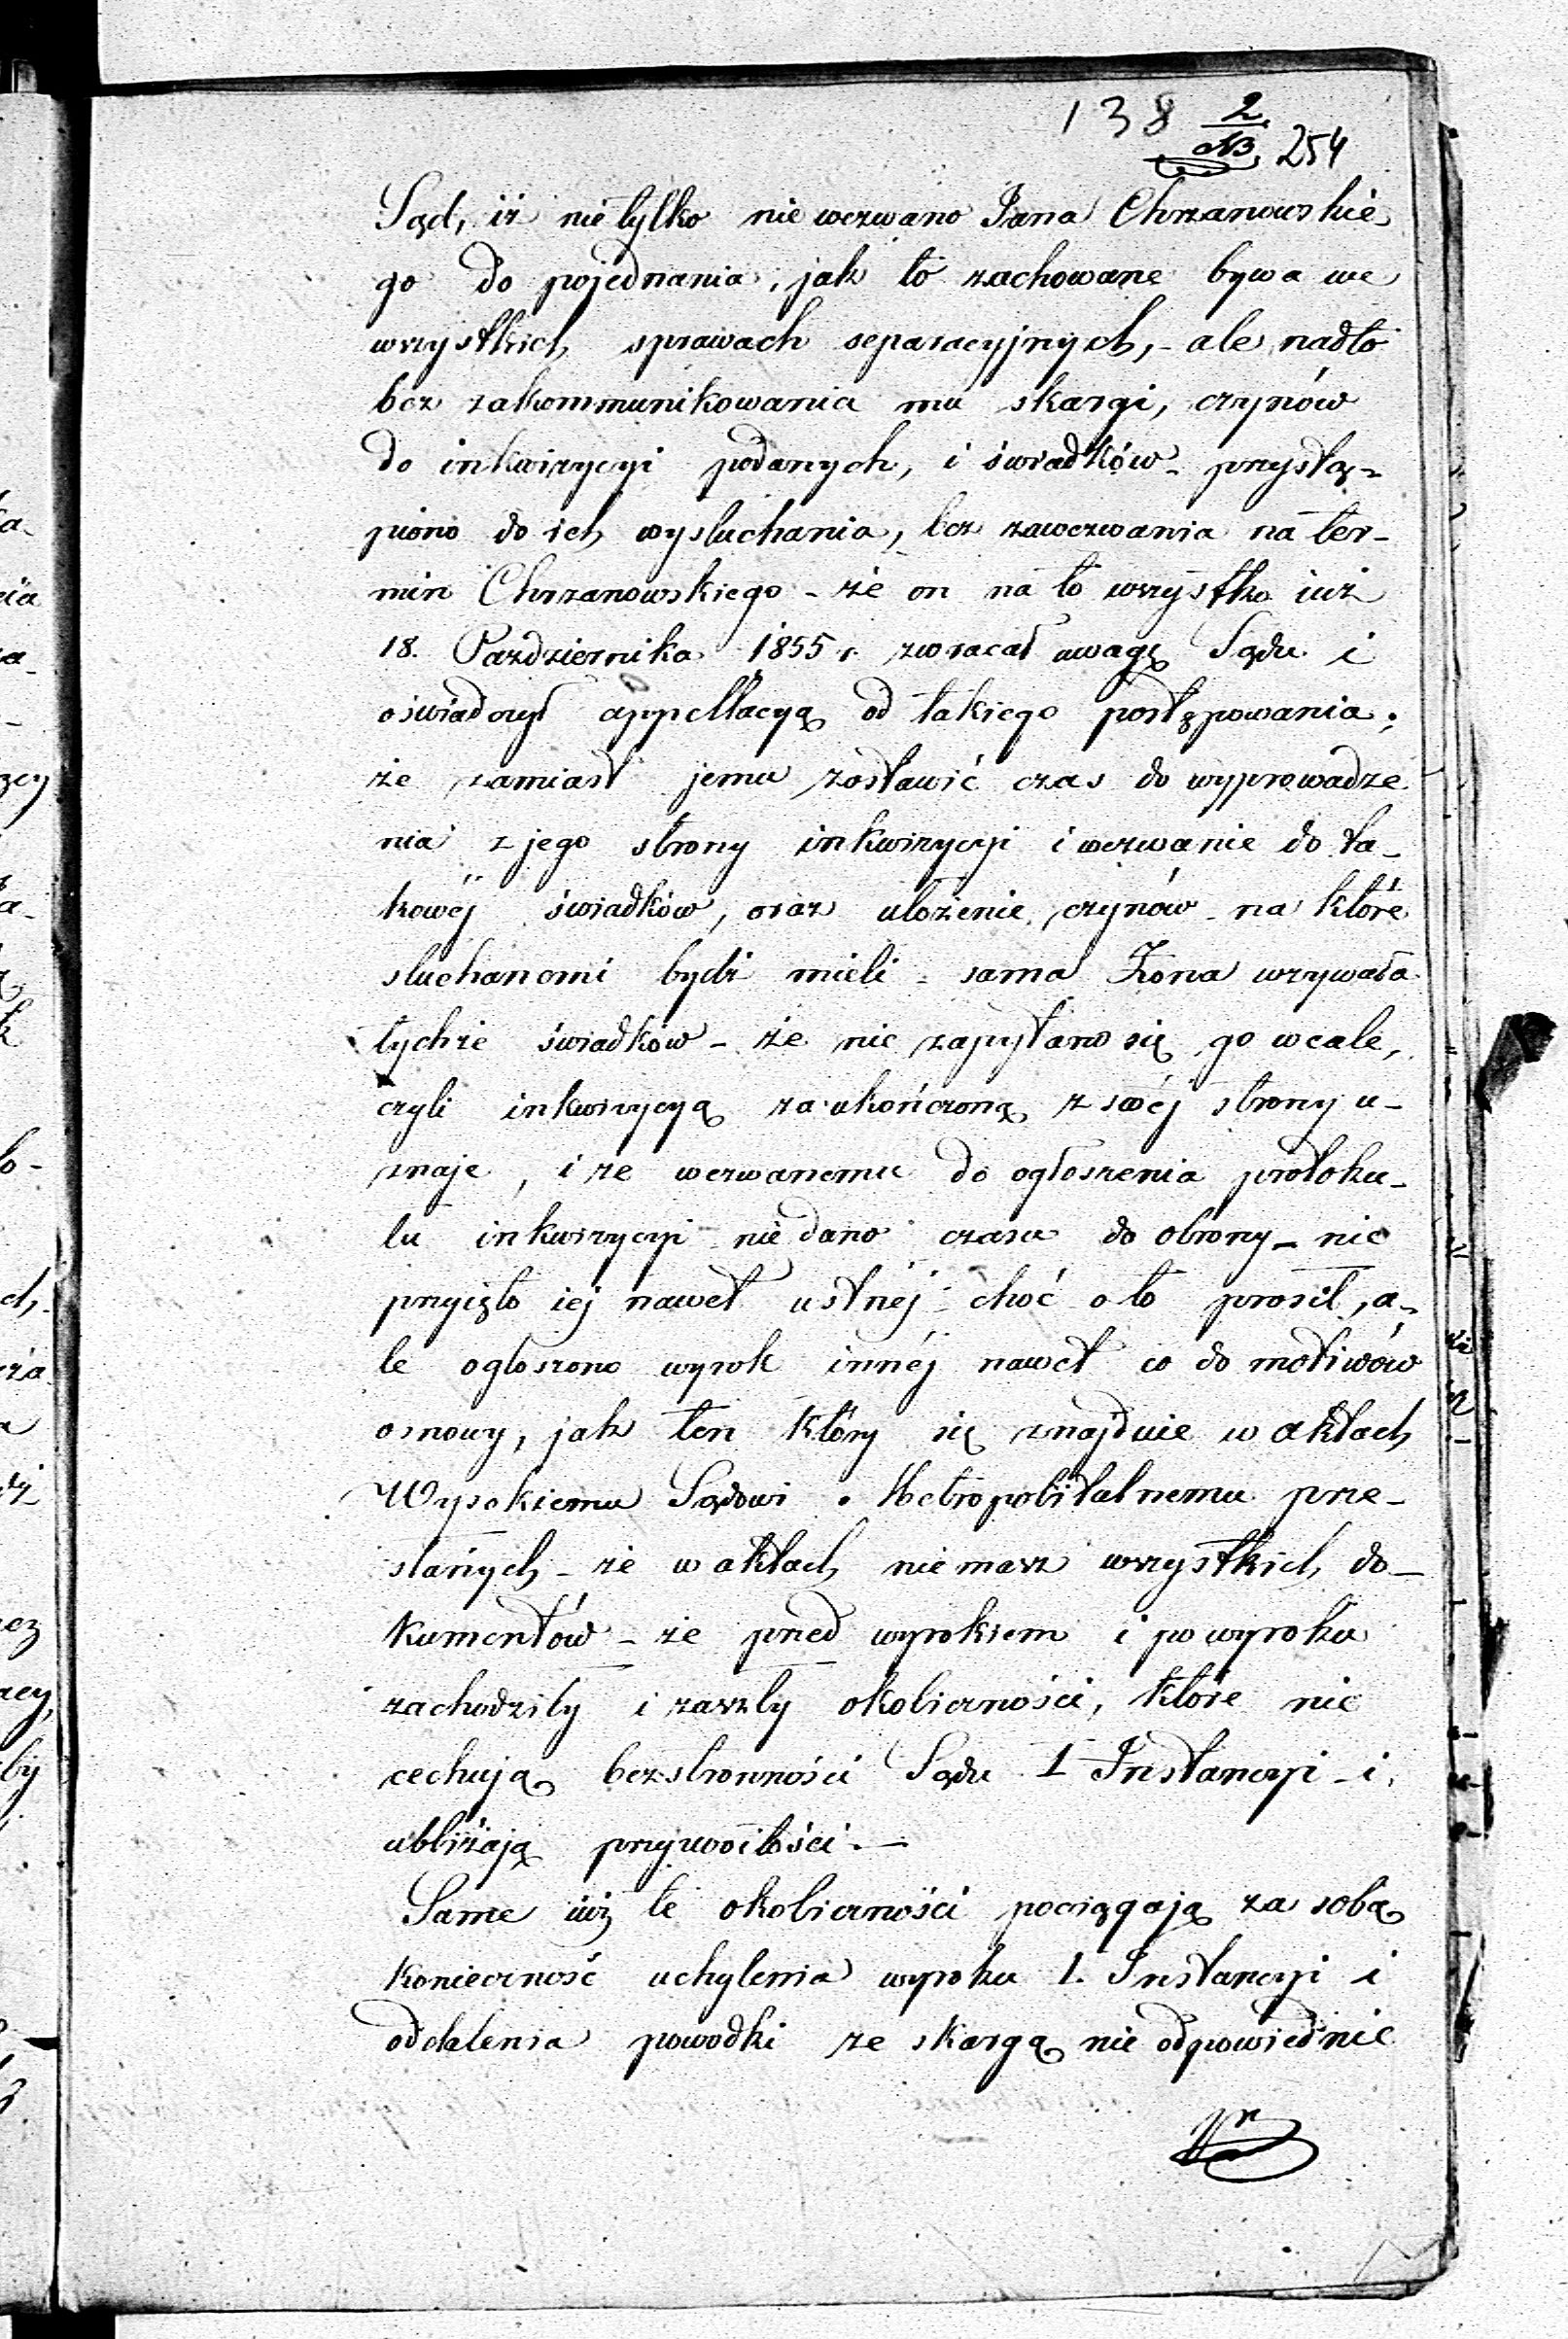 138 2/NB 254
Sąd, iż nie tylko nie wezwano Jana Chrzanowskie
go do pojednania, jak to zachowane bywa we
wszystkich sprawach separacyjnych, - ale nadto
bez zakommunikowania mu skargi, czynów
do inkwizycyi podanych, i świadków - przystą=
piono do ich wysłuchania, bez zawezwania na ter-
min Chrzanowskiego - że on na to wszystko iuż
18. Pazdziernika 1855 r. zwracał uwagę Sądu i
oswiadczył appellacyą od takiego postępowania;
że zamiast jemu zostawić czas do wyprowadze
nia z jego strony inkwizycyi i wezwanie do ta-
kowéj świadków, oraz ułożenie czynów - na które
słuchanemi bydź mieli - sama Żona wzywała
tychże świadków - że nie zapytano się go wcale,
czyli inkwizycyą za ukończoną z swéj strony u-
znaje, i że wezwanemu do ogłoszenia protoku-
łu inkwizycyi nie dano czasu do obrony - nie
przyięto iéj nawet ustnéj - choć o to prosił, a-
le ogłoszono wyrok innéj nawet co do motiwów
osnowy, jak ten który się znajduie w aktach
Wysokiemu Sądowi Metropolitalnemu prze-
słanych - że w aktach nie masz wszystkich do-
kumentów - że przed wyrokiem i po wyroku
zachodziły i zaszły okoliczności, które nie
cechują bezstronności Sądu I Instancyi - i
ubliżają przyzwoitości. -
Same iuż te okoliczności pociągają za sobą
konieczność uchylenia wyroku 1. Instancyi i
oddalenia powodki ze skargą nie odpowiednie